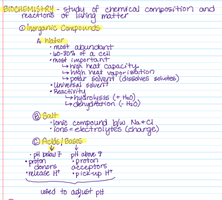 BIOCHEMISTRY - study of chemical composition and
reactions of living matter
① Inorganic Compounds
A. Water
• most abundant
• 60-80% of a cell
• most important
↳ high heat capacity
↳ high heat vaporisation
↳ polar solvent (dissolves solutes)
• Universal solvent
• Reactivity
↳ hydrolysis (+ H₂O)
↳ dehydration (- H₂O)
B. Salt
• Ionic compound b/w Na + Cl
• Ions = electrolytes (charge)
C. Acids/Bases
• pH below 7 • pH above 7
• proton donors • proton acceptors
• release H⁺ • pick-up H⁺
used to adjust pH